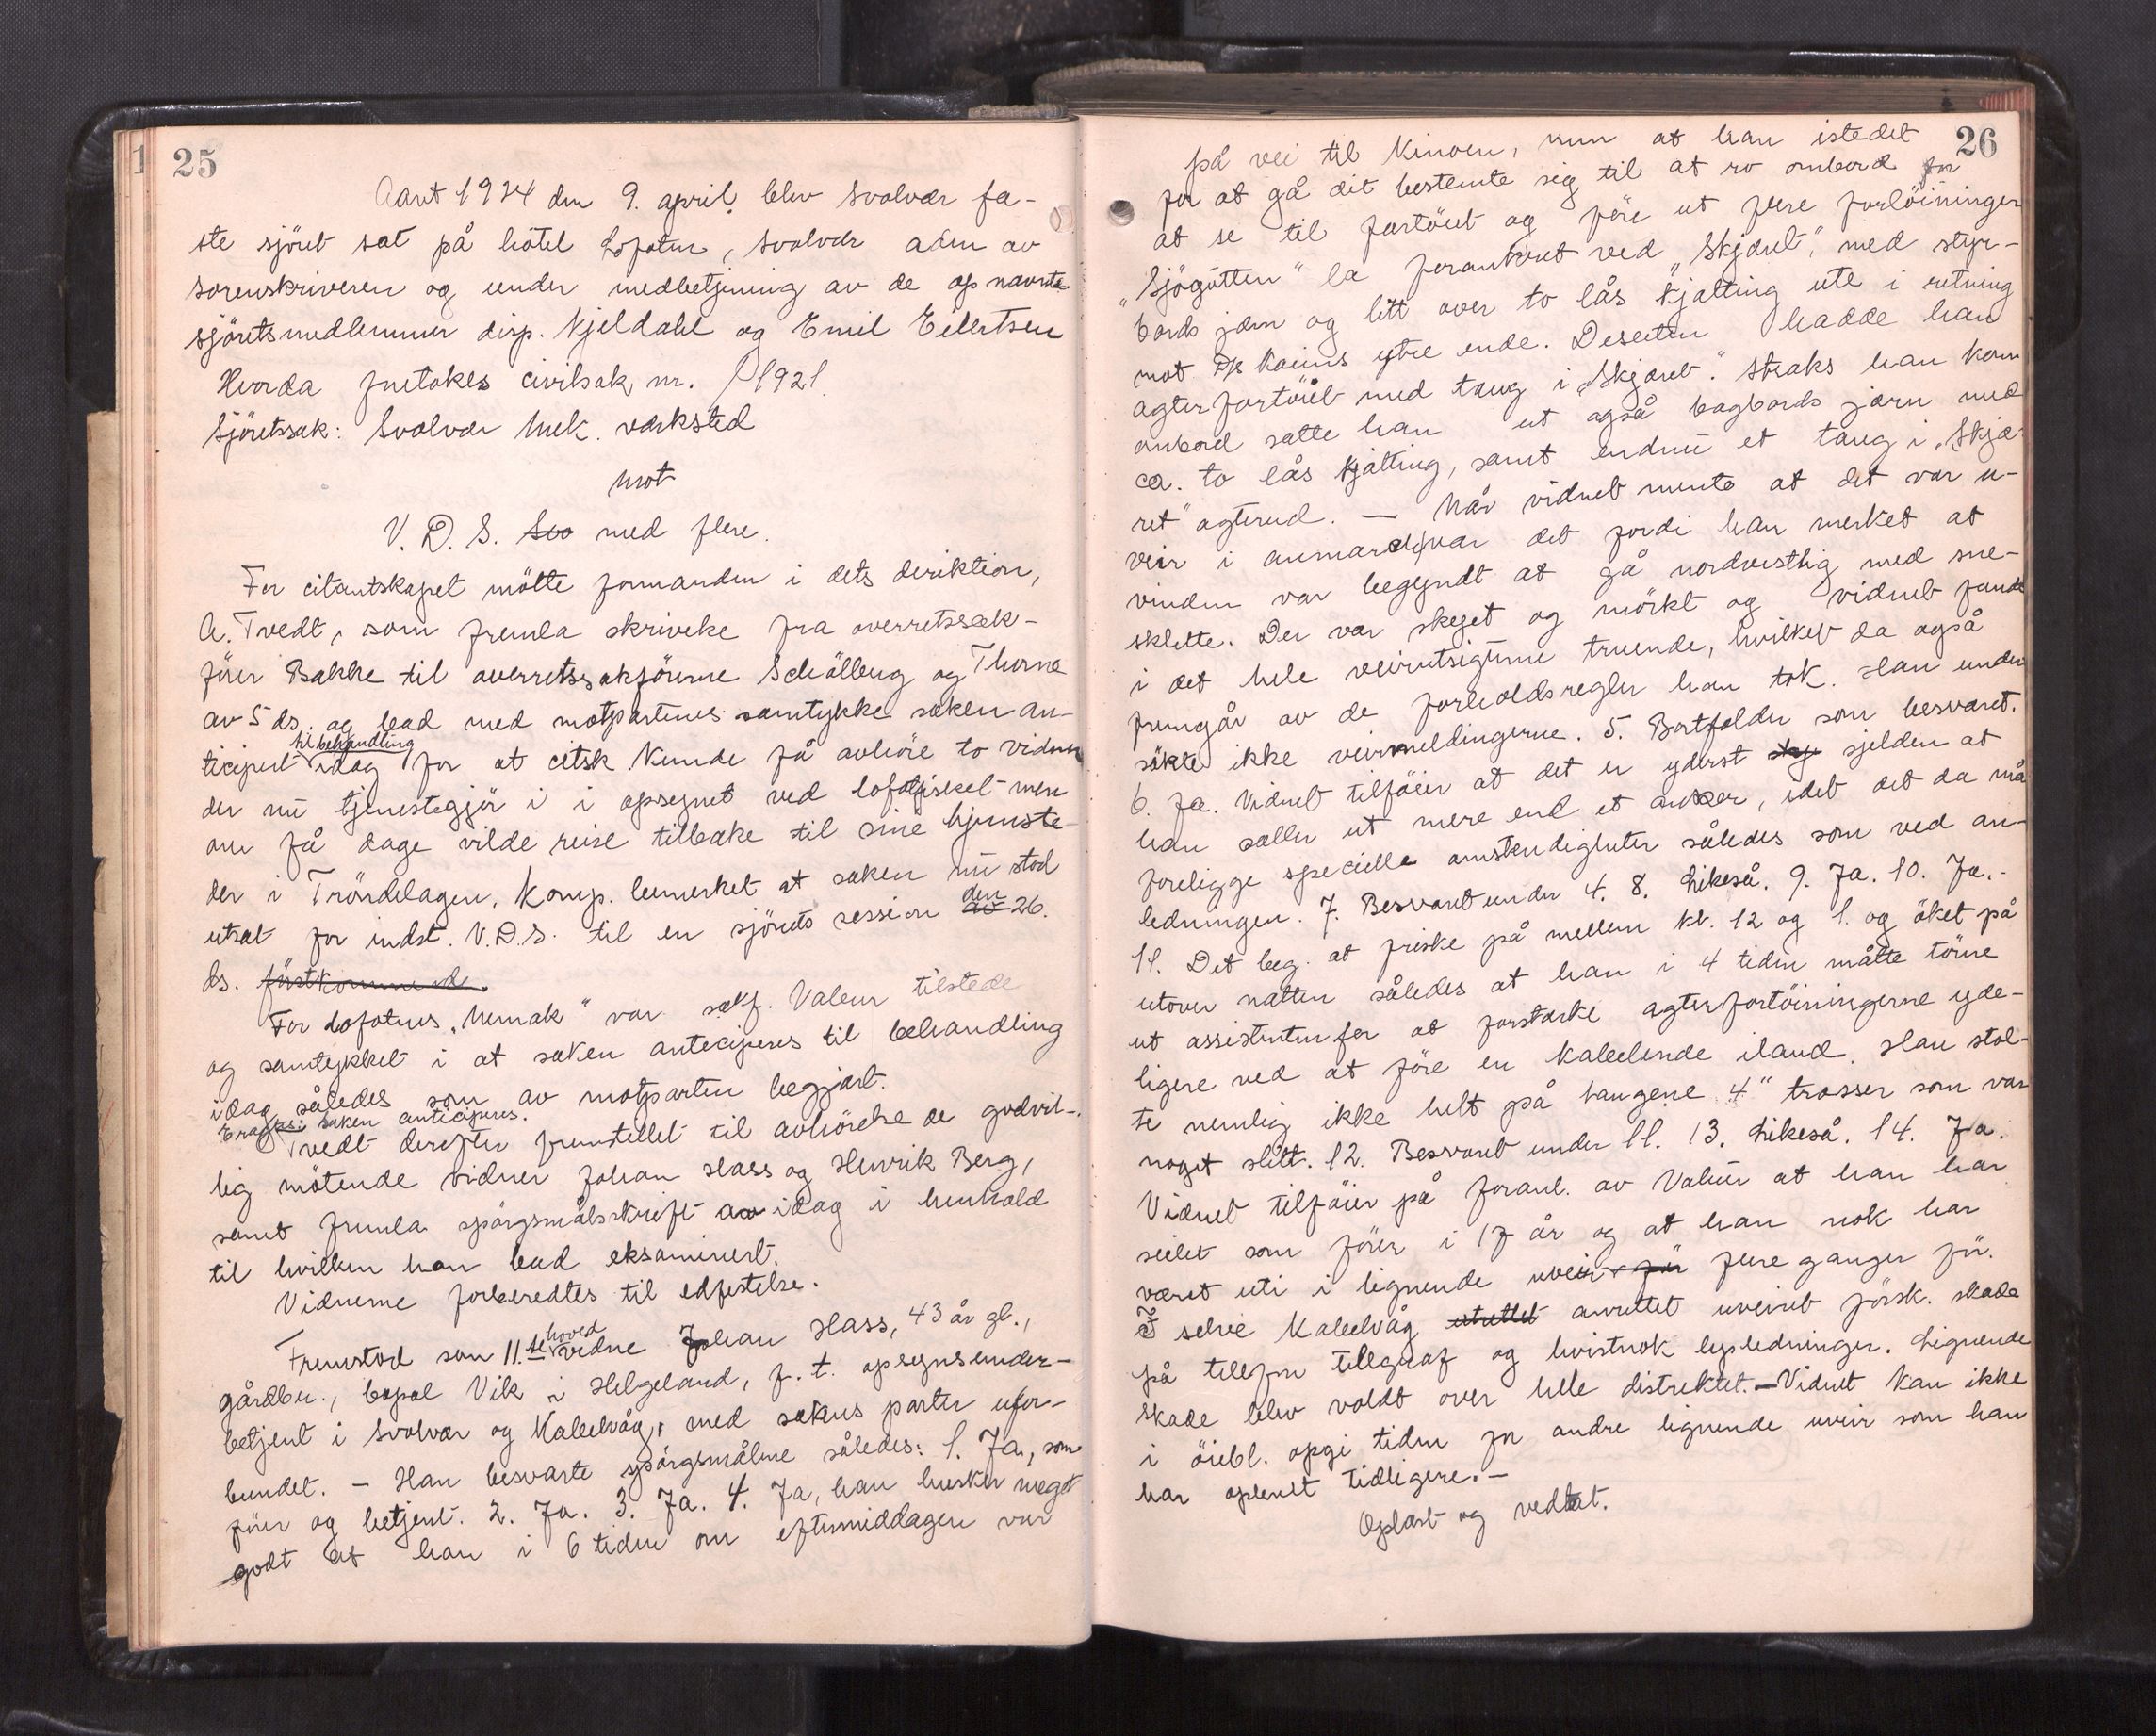 25
Aaret 1924 den 9. april blev Svolvær fa-
ste sjöret sat på hotel Lofoten, Svolvær adm av
sorenskriveren og under medbetjening av de opnævnte
sjöretsmedlemmer disp. Kjeldahl og Emil Eilertsen
Hvorda foretokes civilsak nr. /1921
Sjöretssak: Svolvær mek. værksted
mot
V. D. S. med flere.
For citantskapet mötte formanden i dets direktion,
A. Tvedt, som fremla skrivelse fra overretssak-
förer Bakke til overretssakförerne Schölberg og Thorne
av 5 ds. og bad med motpartenes samtykke saken an-
ticipert til behandling idag for at citsk kunde få avhöre to vidner
der nu tjenestegjör i i opsynet ved lofotfisket men
om få dage vilde reise tilbake til sine hjemste-
der i Tröndelagen. Komp. bemerket at saken nu stod
utsat for indst. V.D.S. til en sjörets session den 26.
ds. förstkommende.
For Lofotens "Memak" var sakf. Valeur tilstede
og samtykket i at saken anteciperes til behandling
idag således som av motparten begjært.
Eragtes: Saken anticiperes.
Tvedt derefter fremstillet til avhörelse de godvil-
lig mötende vidner Johan Hass og Henrik Berg,
samt fremla spörgsmålsskrift av idag i henhold
til hvilken han bad eksaminert.
Vidnerne forberedtes til edfestelse.
Fremstod som 11.te hovedvidne Johan Hass, 43 år gl.,
gårdbr., bopæl Vik i Helgeland, f. t. opsynsunder-
betjent i Svolvær og Kabelvåg, med sakens parter ufor-
bundet. - Han besvarte spörgsmålene således: 1. Ja, som
förer og betjent. 2. Ja. 3. Ja. 4. Ja, han husker meget
godt at han i 6 tiden om eftermiddagen var
26
på vei til Kinoen, men at han istedet
for at gå dit bestemte sig til at ro ombord for
at se til fartöiet og före ut flere forlöininger
"Sjögutten" la forankret ved "Skjæret", med styr-
bords jern og litt over to lås kjætting ute i retning
mot Dp kaiens ytre ende. Desuten hadde han
agterfortöiet med taug i "Skjæret". Straks han kom
ombord satte han ut også bagbords jern med
ca. to lås kjætting, samt endnu et taug i "Skjæ-
ret" agterud. - Når vidnet mente at det var u-
veir i anmarch, var det fordi han merket at
vinden var begyndt at gå nordvestlig med sne-
sklette. Der var skyet og mörkt og vidnet fandt
i det hele veirutsigterne truende, hvilket da også
fremgår av de forholdsregler han tok. Han under-
sökte ikke veirmeldingerne. 5. Bortfalder som besvaret.
6. Ja. Vidnet tilföier at det er yderst sky sjelden at
han sætter ut mere end et anker, idet det da må
foreligge specielle omstendigheter således som ved an-
ledningen. 7. Besvaret under 4. 8. Likeså. 9. Ja. 10. Ja. -
11. Det beg. at friske på mellem kl. 12 og 1. og öket på
utover natten således at han i 4 tiden måtte törne
ut assistenten for at forstærke agterfortöiningerne yde-
ligere ved at före en kabelende iland. Han stol-
te nemlig ikke helt på haugene 4" trosser som var
noget slitt. 12. Besvaret under 11. 13. Likeså. 14. Ja.
Vidnet tilföier på foranl. av Valeur at han har
seilet som förer i 17 år og at han nok har
været uti i lignende uveir för flere ganger för.
I selve Kabelvåg utrettet anrettet uveiret försk. skade
på telefon telegraf og hvistnok lysledninger. Lignende
skade blev voldt over hele distriktet. - Vidnet kan ikke
i öiebl. opgi tiden for andre lignende uveir som han
har oplevet tidligere. -
Oplæst og vedtat.